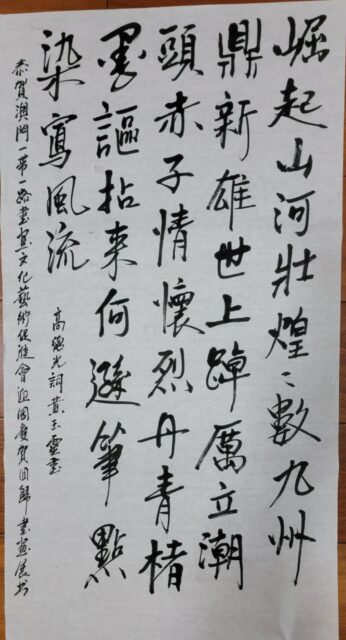 崛起山河壯煌〻數九州
鼎新雄世上踔厲立潮
頭赤子情懷烈丹青楮
墨謳拈来何遜筆點
染寫風流
高光詞黄玉靈書
恭賀澳門一帶一路書畫文化藝術促進會迎國慶賀回歸書畫展書